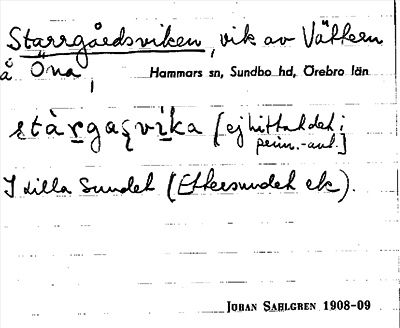 Starrgårdsviken, vik av Vättern
å Öna,
Hammars sn, Sundbo hd, Örebro län
stàrgasvika [ej hittat det i
prim.-ant.]
I lilla Sundet (Ettersundet etc).
JOHAN SAHLGREN 1908-09